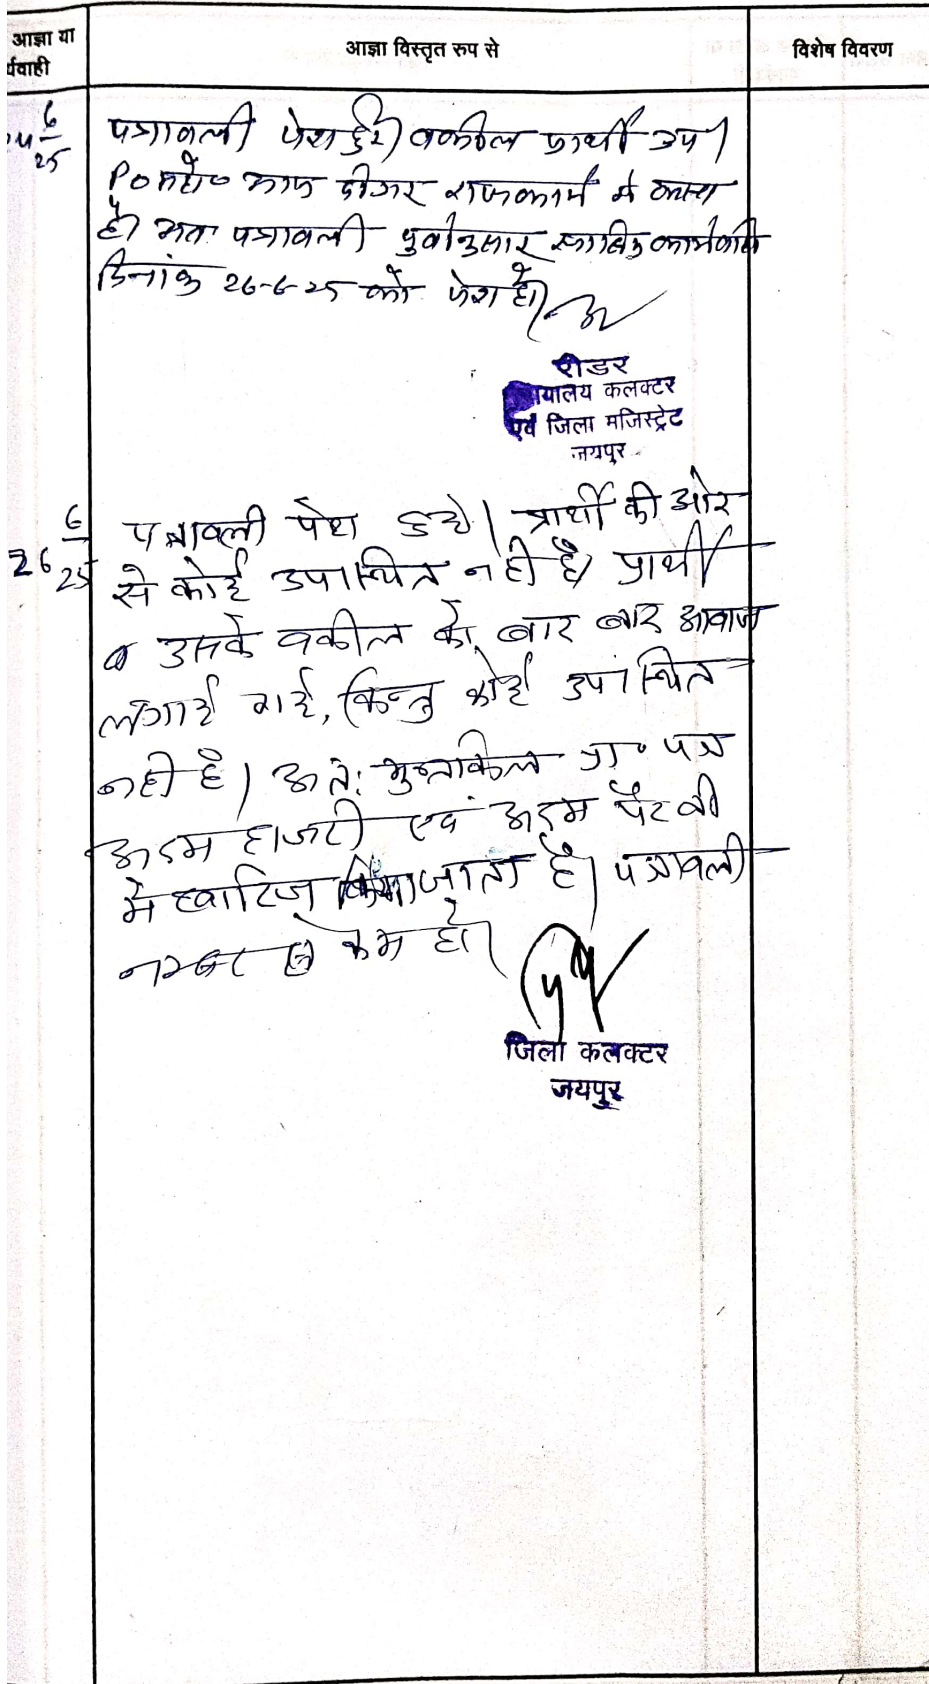 आज्ञा या
र्यवाही
आज्ञा विस्तृत रुप से
विशेष विवरण
6
25
पत्रावली पेश हुई। वकील प्रार्थी उप।
P०महो० आज दीगर राजकार्य मे व्यस्त
है। अतः पत्रावली पुर्वानुसार कार्यवाही
दिनांक 26-6-25 को पेश हो।
रीडर
यालय कलक्टर
एवं जिला मजिस्ट्रेट
जयपुर
26 6
25
पत्रावली पेश हुई। प्रार्थी की ओर
से कोई उपस्थित नही है। प्रार्थी
व उसके वकील को बार बार आवाज
लगाई गई, किन्तु कोई उपस्थित
नही है। अतः मुन्तकिल प्रा० पत्र
अदम हाजरी एवं अदम पैरवी
मे खारिज किया जाता है। पत्रावली
नम्बर से कम हो।
जिला कलक्टर
जयपुर